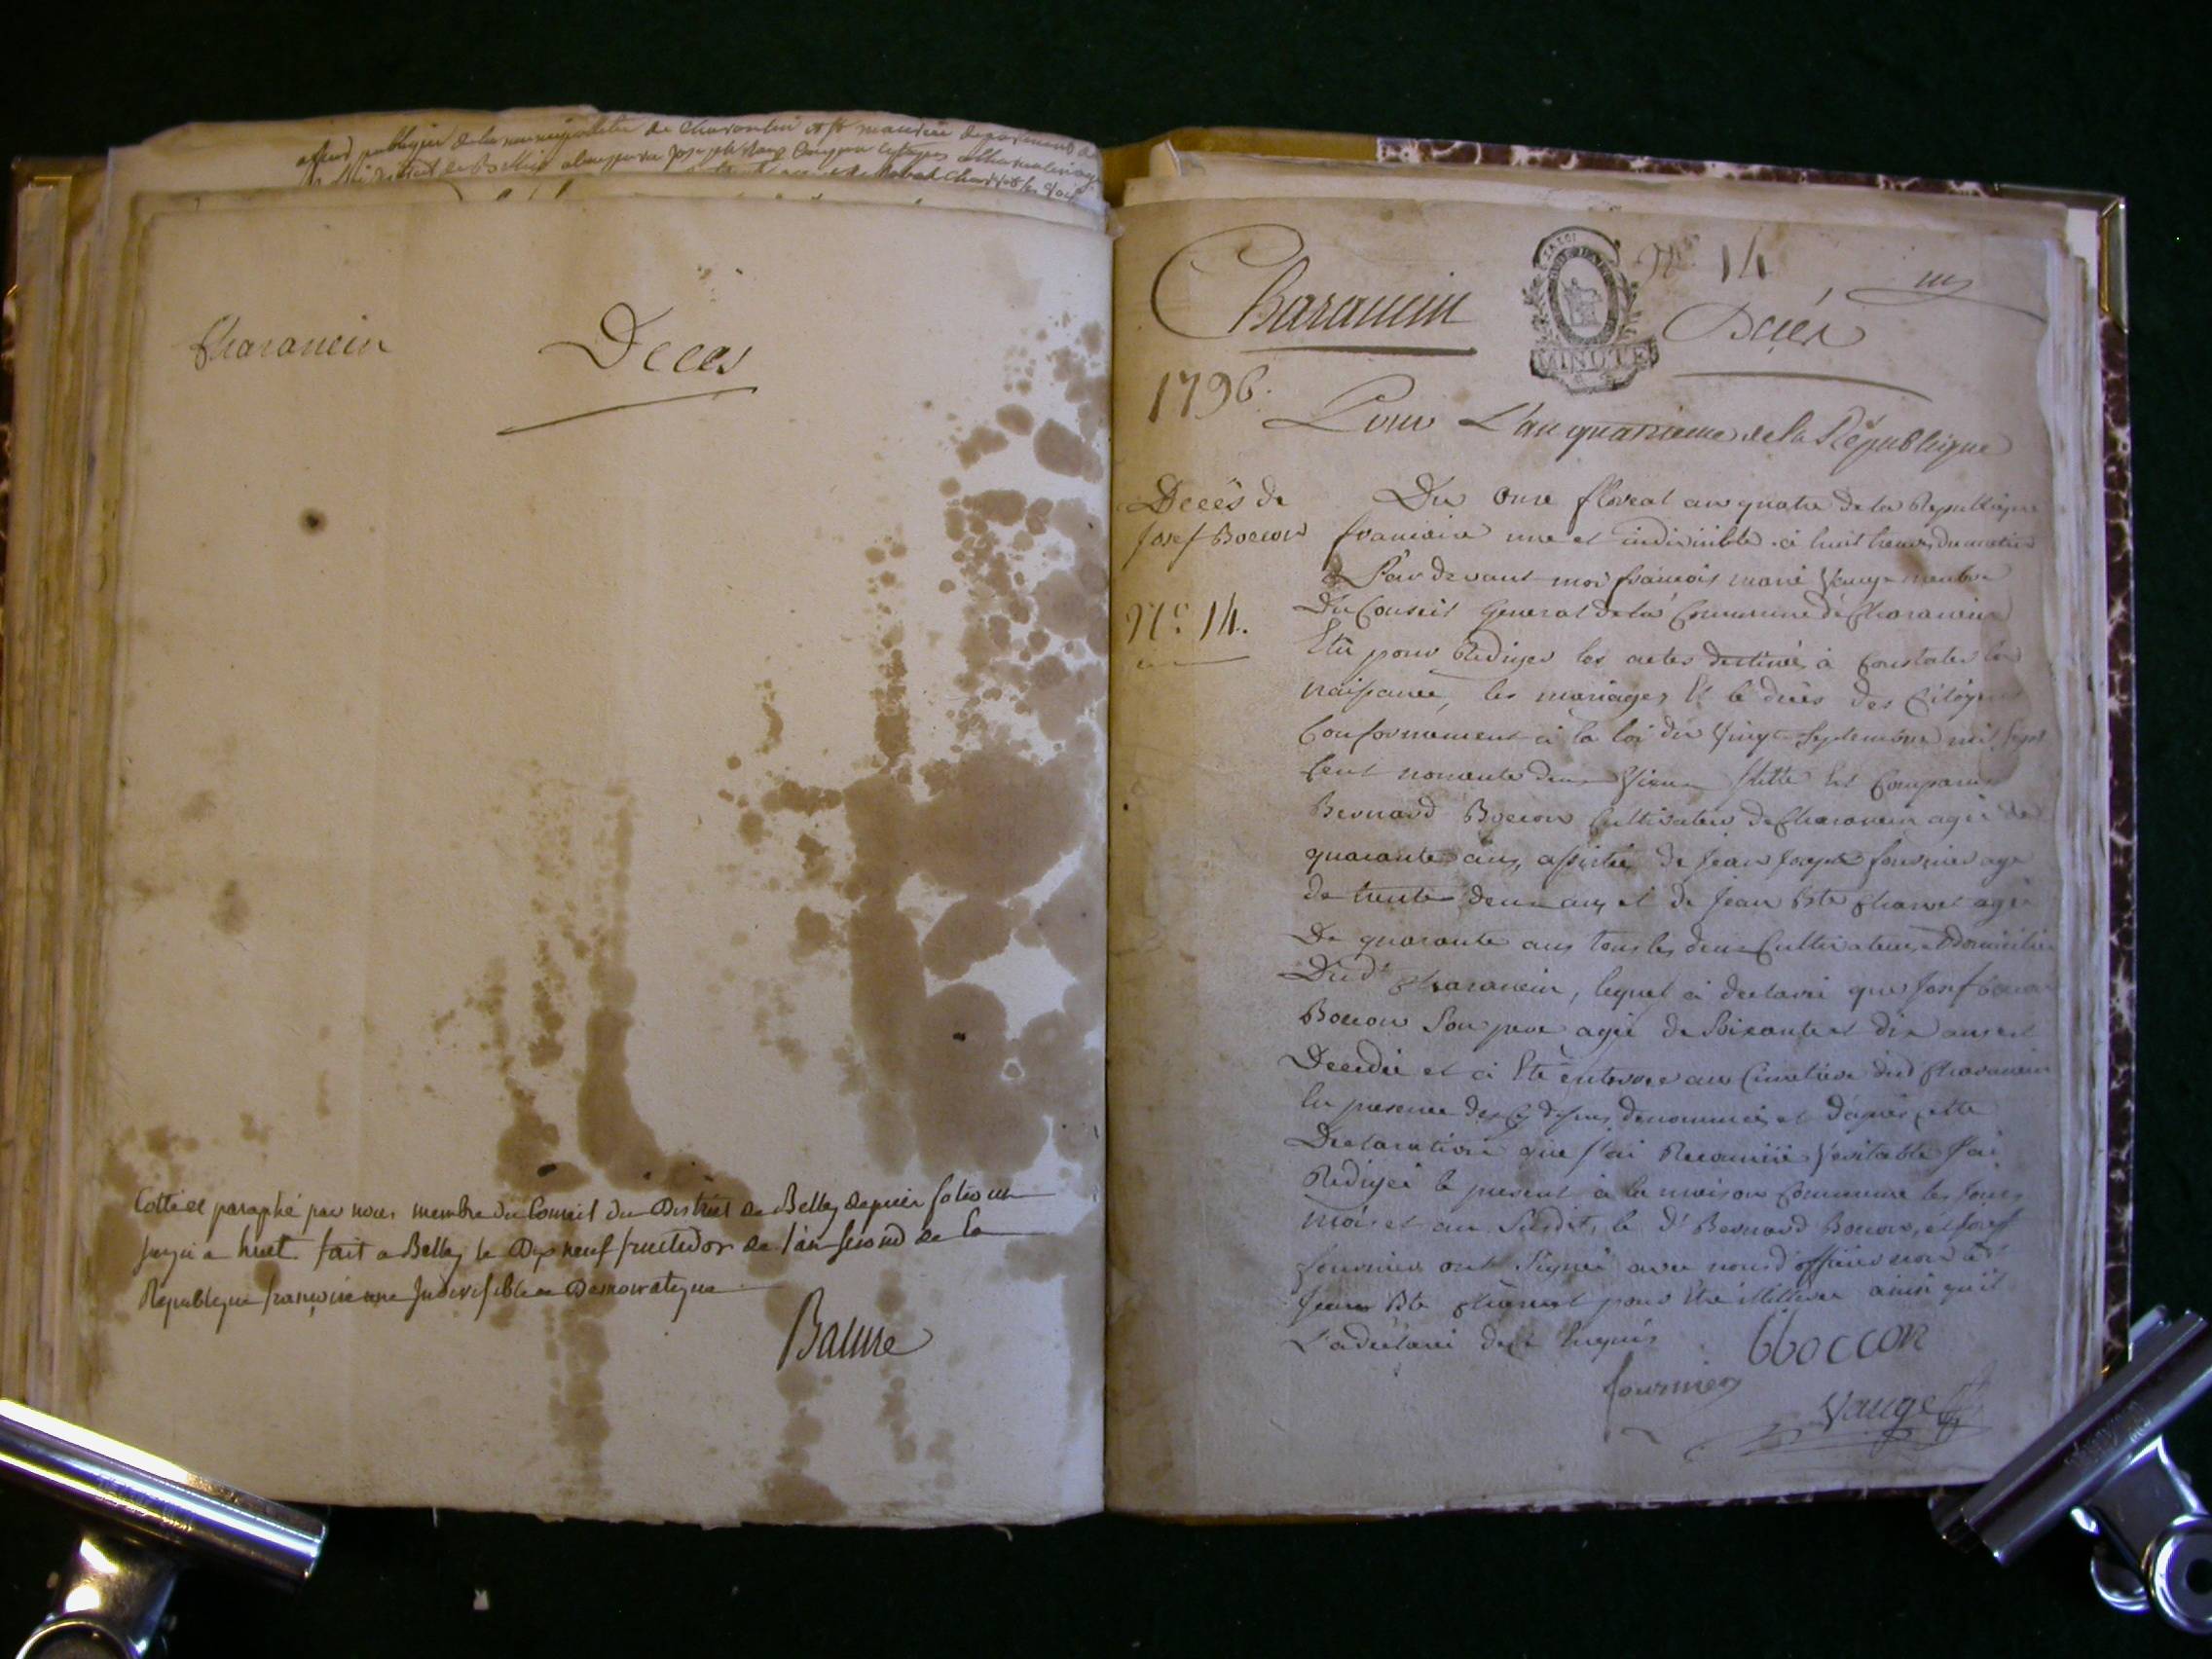 officier publique de la municipalité de Charantin et St maurice departement de
Joseph
Charancin
Decés
Cotté et paraphé par nous membre du Conseil du District de Belley depuis folio un
jusqu'a huit fait a Belley le Dix neuf fructidor de l'an second de la
Republique françoise une Indivisible et Democratique
Balme
Charancin
LA LOI
MINUTE
No 14
Decés
1796.
Pour L'an quatrieme de la République
Decés de
Josef Boccon
No 14.
Du onze floreal an quatre de la Republique
francoise une et indivisible à huit heures du matin
Par devant moi francois marie Vauge membre
Du Conseil General de la Commune de Charancin
Elu pour Rediger les actes destinés à Constater les
naissance, les mariages Et le decés des Citoyens
Conformement à la loi du Vingt Septembre mil Sept
Cent nonante deux Vieux Stille Est Comparu
Bernard Boccon Cultivateur de Charancin agé de
quarante ans, assistée de Jean Joseph fournier agé
de trente deux ans et de Jean Bte Charvet agé
De quarante ans tous les deux Cultivateurs domicilié
Dud Charancin, lequel à declaré que Josef
Boccon Son pere agée de Soixante et dix ans est
Decedée et à Eté enterré au Cimetiere dud Charancin
En presence des Cy dessus denommés, et d'apres cette
Declaration que J'ai Reconnüe Veritable J'ai
Redigé le present à la maison Commune les Jours
mois et an Susdits, le d Bernard Boccon, et Josef
fournier ont Signé avec nous d officier non led
Jean Bte Charvet pour Etre illitteré ainsi qu'il
L'a declaré de ce Enquis
bboccon
fournier
Vauge